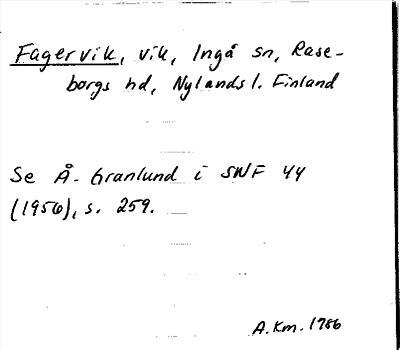 Fagervik, vik, Ingå sn, Rase-
borgs hd, Nylands l. Finland
Se Å. Granlund i SNF 44
(1956), s. 259.
A.Km. 1786